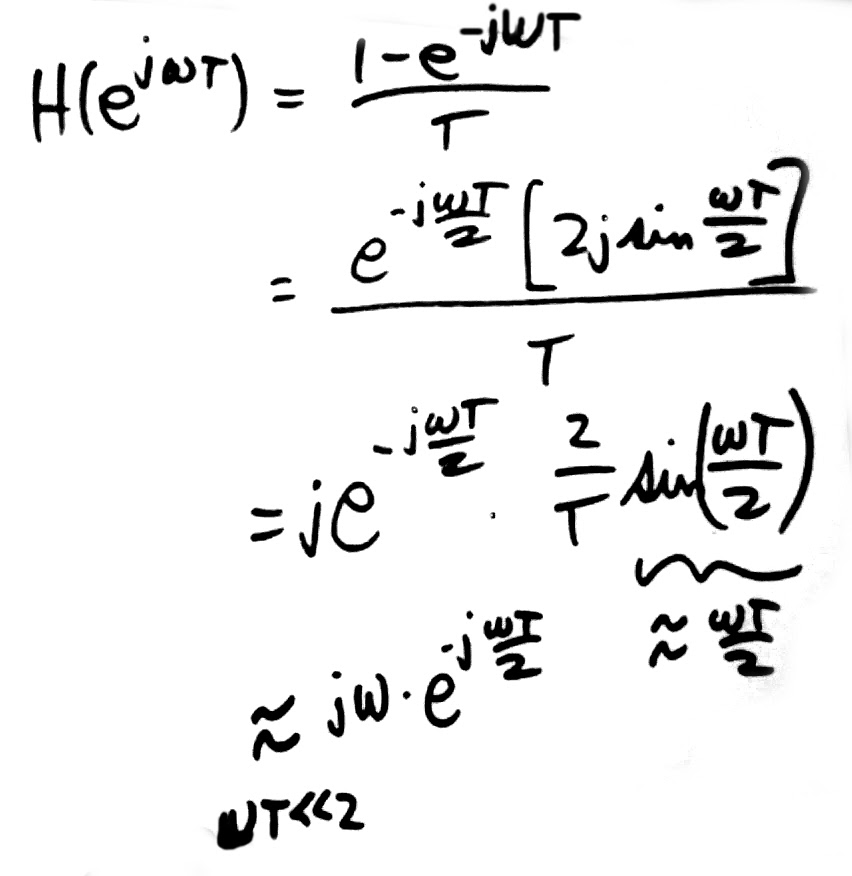 H(e^{jωT}) = \frac{1-e^{-jωT}}{T}
= \frac{e^{-j\frac{ωT}{2}} [2j sin \frac{ωT}{2}]}{T}
= je^{-j\frac{ωT}{2}} · \frac{2}{T} sin(\frac{ωT}{2})
≈ \frac{ωT}{2}
≈ jω · e^{-j\frac{ωT}{2}}
ωT<<2